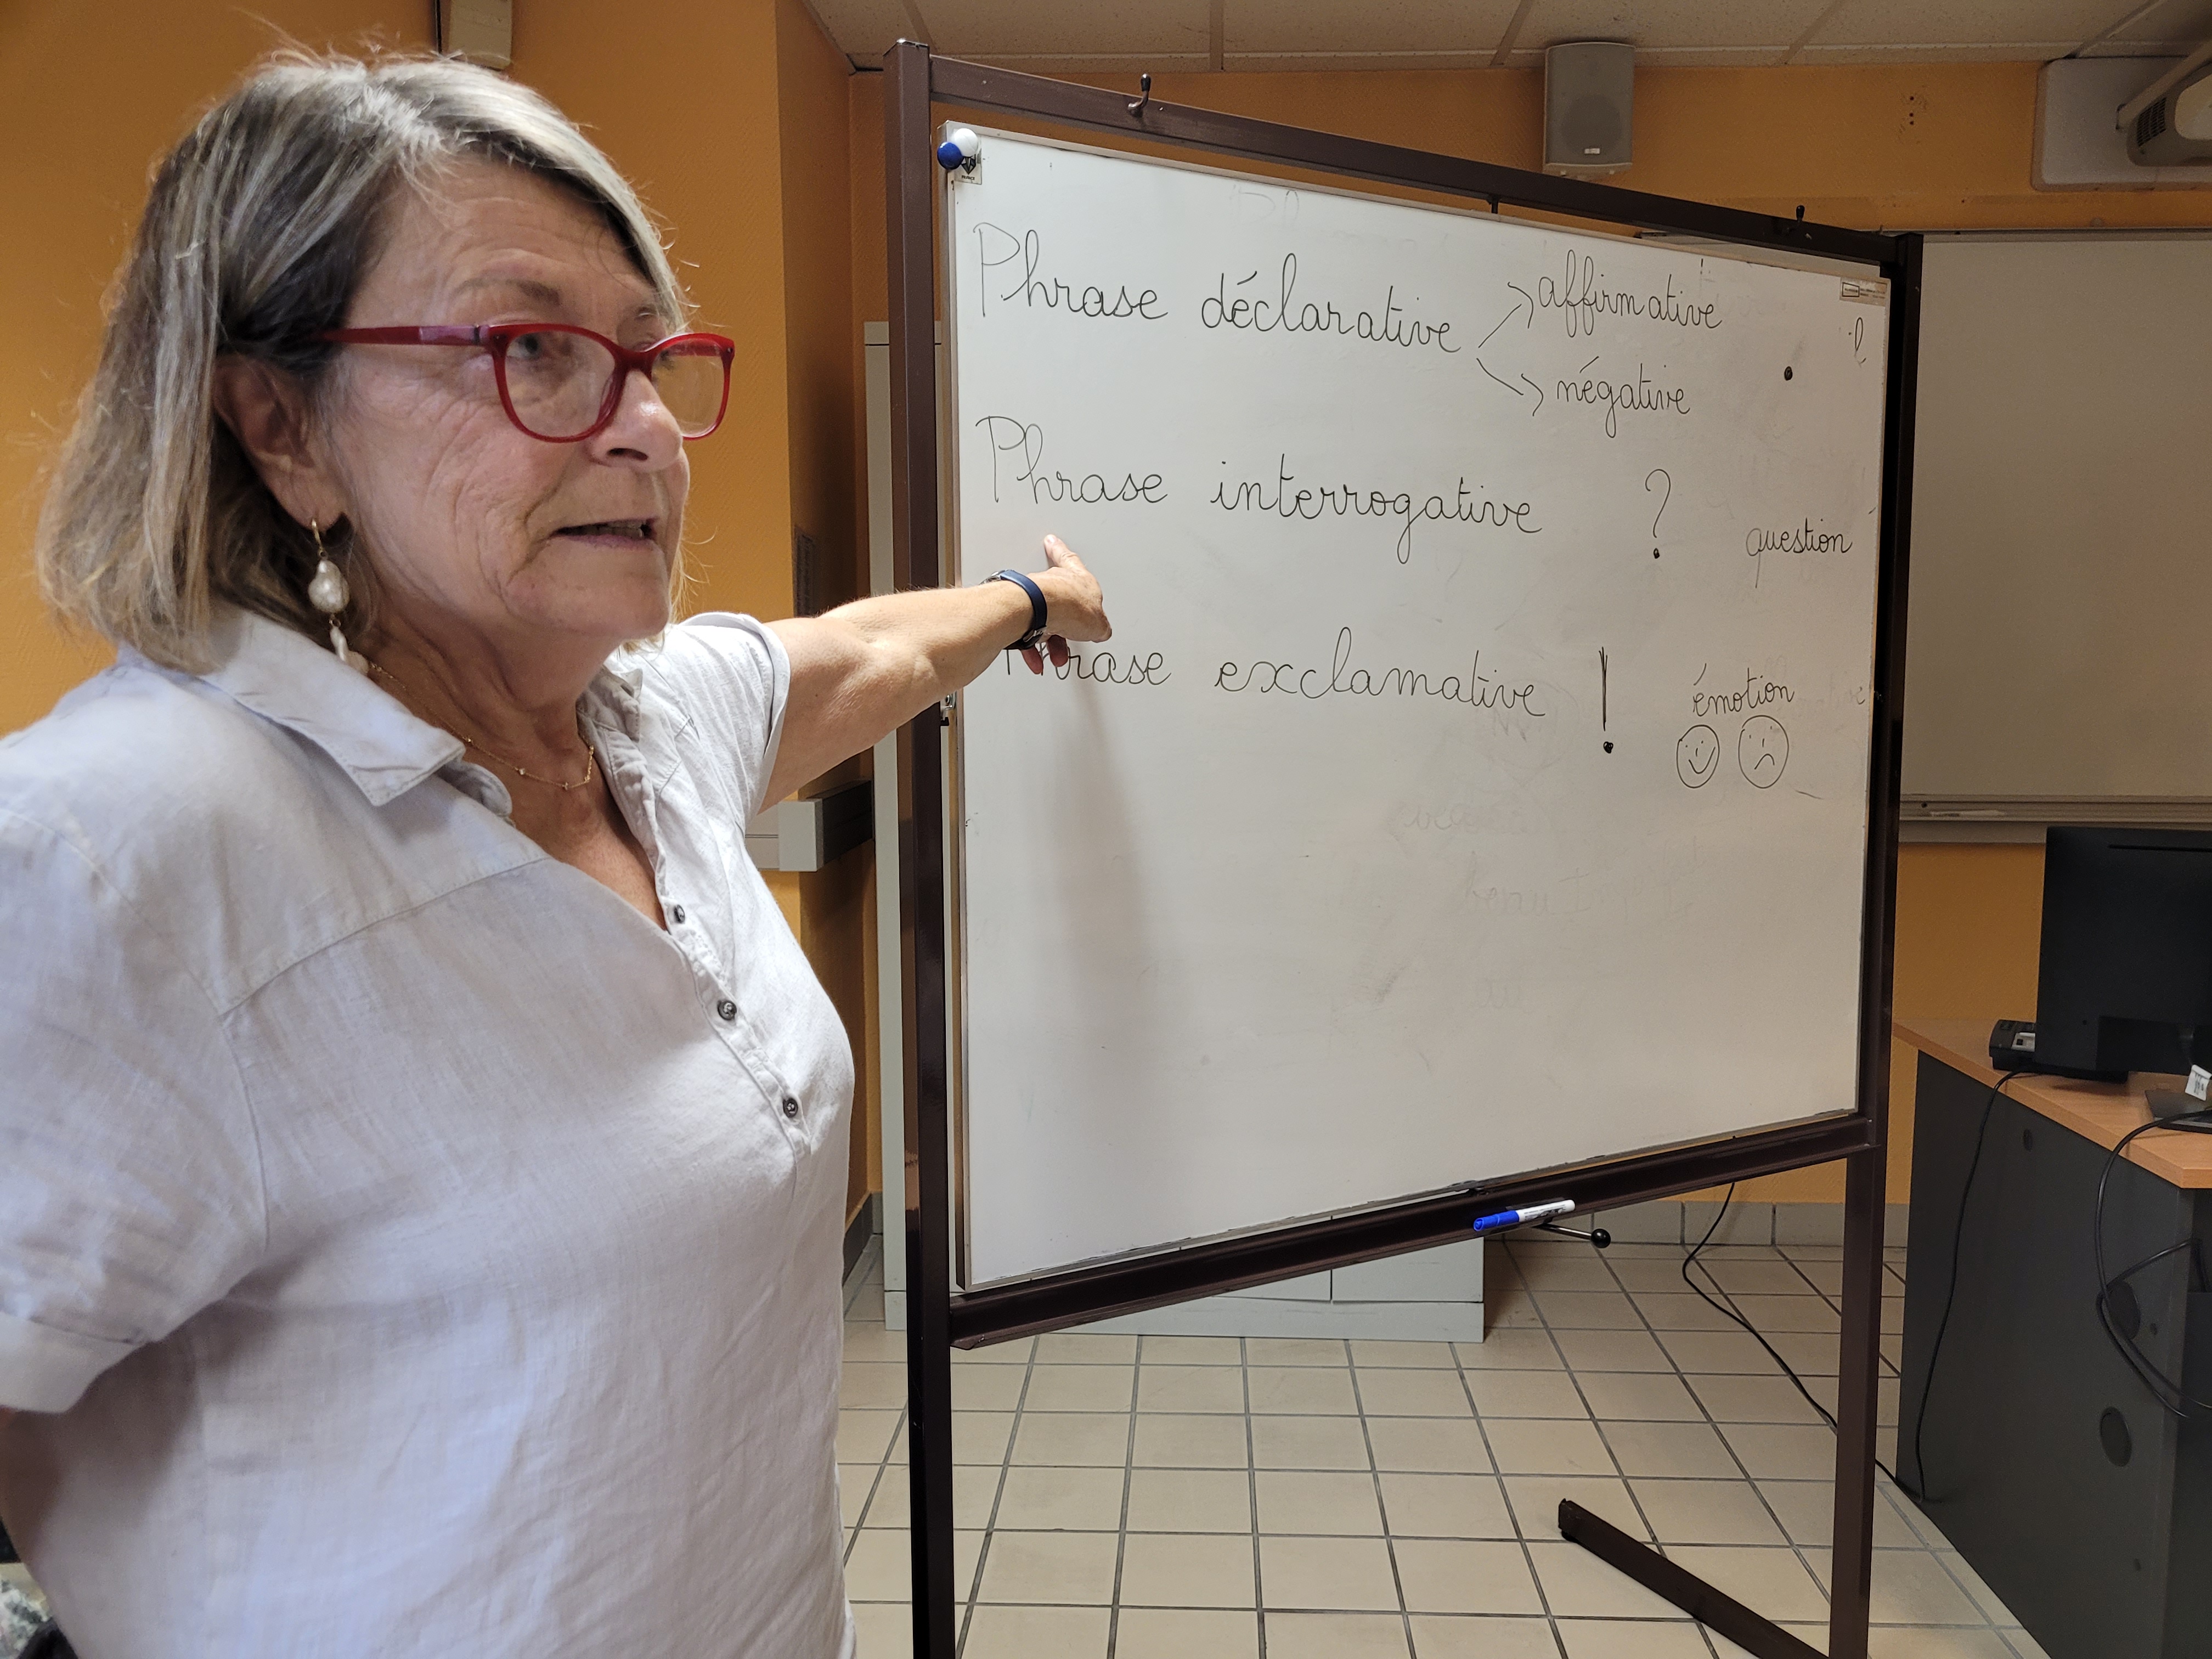 Phrase déclarative → affirmative
→ négative .
Phrase interrogative ? question
Phrase exclamative ! émotion